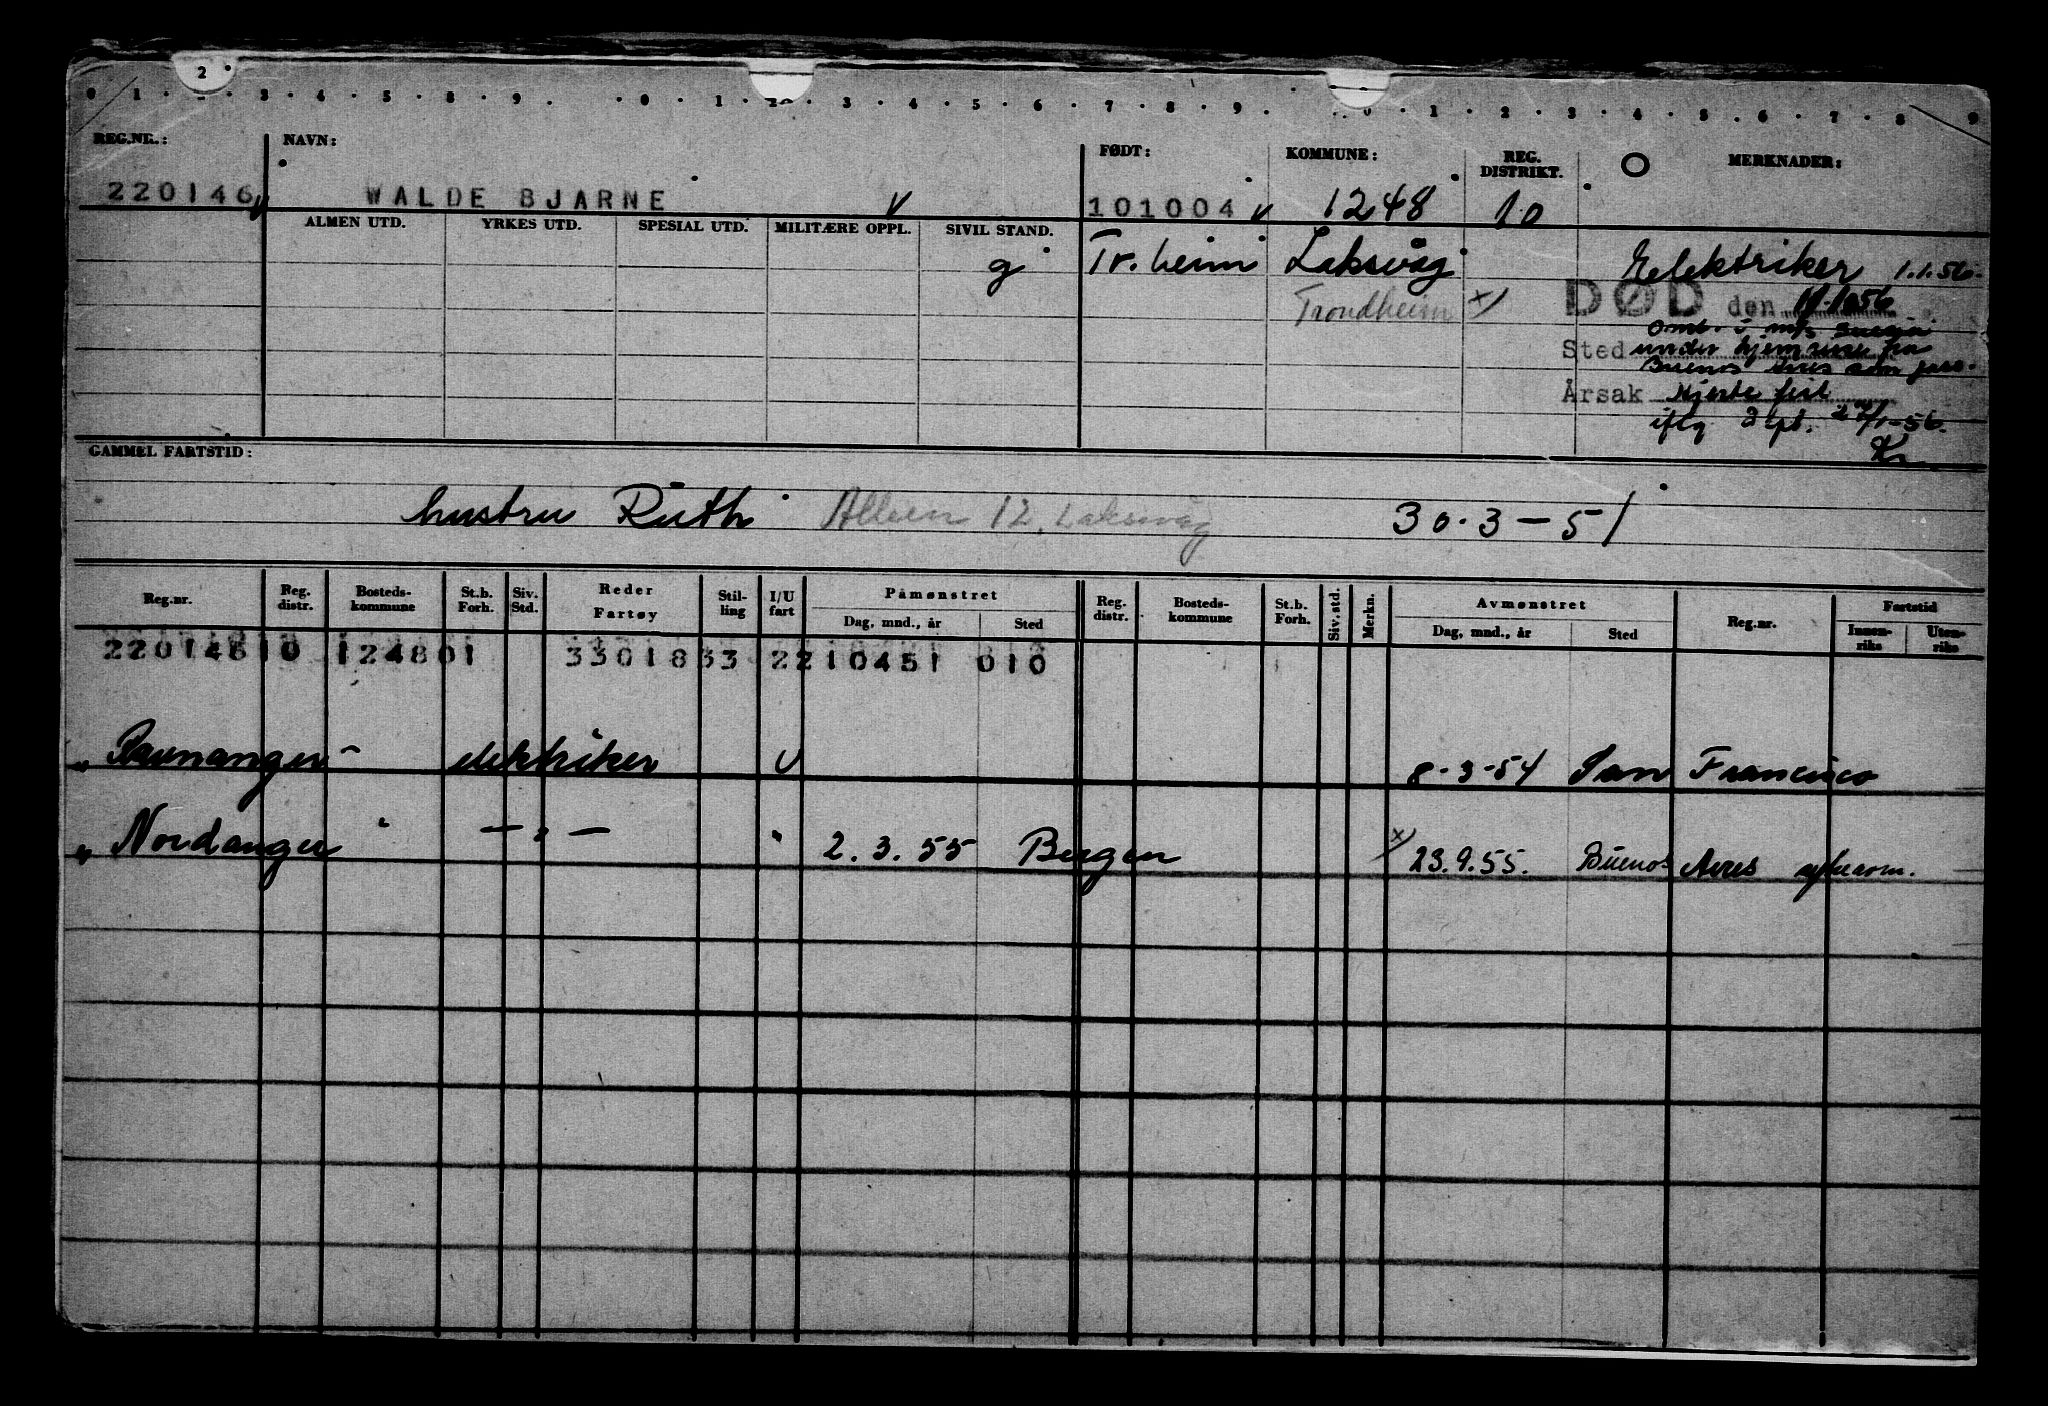 2
0 1 2 3 4 5 8 9 0 1 20 3 4 5 6 7 8 9 0 1 2 3 4 5 6 7 8 9
REG.NR.: NAVN: FØDT: KOMMUNE: REG. DISTRIKT. MERKNADER:
220146 WALDE BJARNE 101004 1248 10
ALMEN UTD. YRKES UTD. SPESIAL UTD. MILITÆRE OPPL. SIVIL STAND.
g Tr.heim Laksvåg Elektriker 1.1.56.
Trondheim x) DØD den
Omb. i m/s
Sted under hjemreise fra
Buenos Aires som pass.
Årsak Hjertefeil
iflg
Kr
GAMMEL FARTSTID:
hustru Ruth Alleen 12, Laksevåg 30.3-51
Reg.nr. Reg. distr. Bosteds-kommune St.b. Forh. Siv. Std. Reder Fartøy Stil-ling I/U fart Påmønstret Dag, mnd., år Sted Reg. distr. Bosteds-kommune St.b. Forh. Siv. std. Merkn. Avmønstret Dag, mnd., år Sted Reg.nr. Fartstid Innen-riks Uten-riks
220146 10 124801 330183 3 2 210451 010
" Ravnanger - elektriker U 8-3-54 San Francisco
" Nordanger " — " — " 2.3.55 Bergen x) 23.9.55. Buenos Aires sykdom.